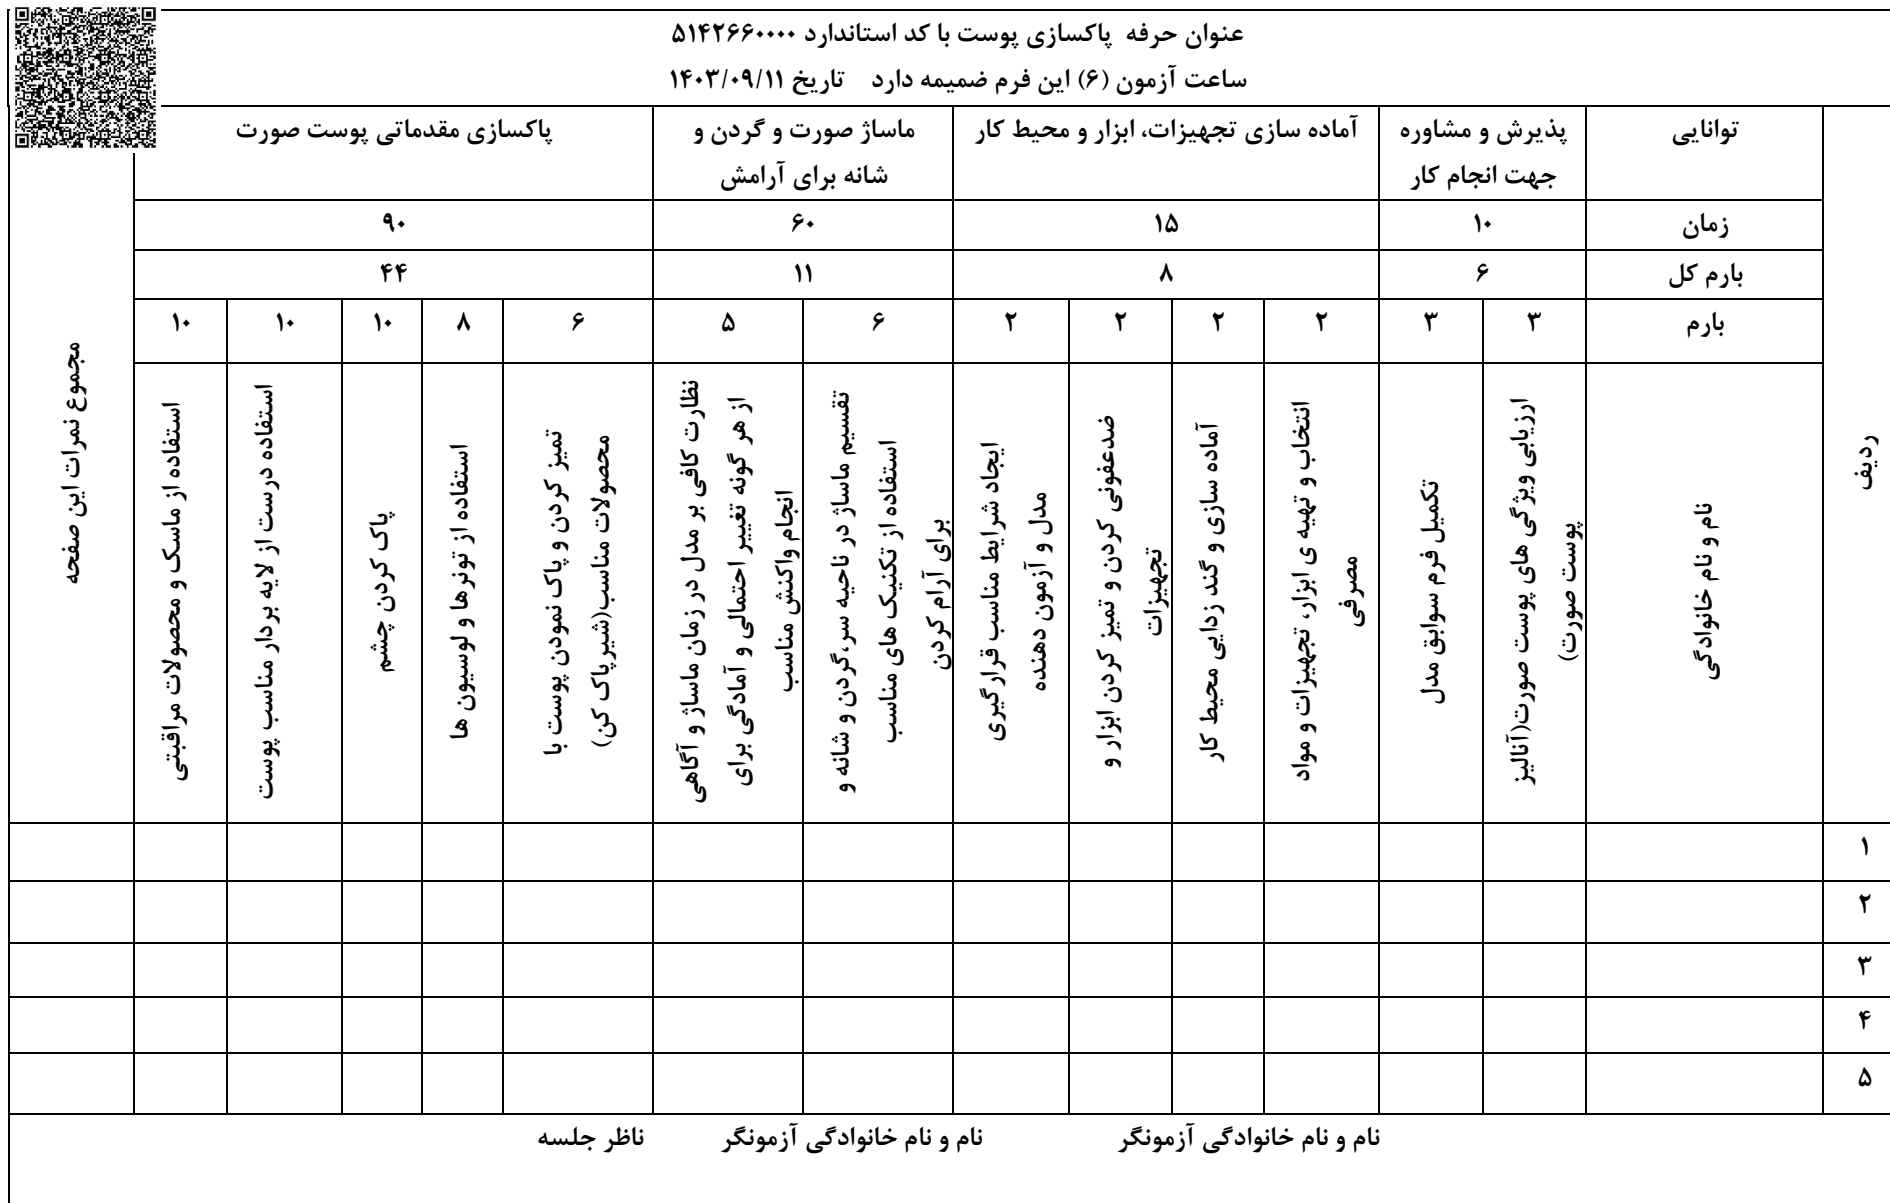 عنوان حرفه پاکسازی پوست با کد استاندارد ۵۱۴۲۶۶۰۰۰۰
ساعت آزمون (۶) این فرم ضمیمه دارد تاریخ ۱۴۰۳/۰۹/۱۱
ردیف
توانایی
پذیرش و مشاوره
جهت انجام کار
آماده سازی تجهیزات، ابزار و محیط کار
ماساژ صورت و گردن و
شانه برای آرامش
پاکسازی مقدماتی پوست صورت
مجموع نمرات این صفحه
زمان ۱۰ ۱۵ ۶۰ ۹۰
بارم کل ۶ ۸ ۱۱ ۴۴
بارم ۳ ۳ ۲ ۲ ۲ ۲ ۶ ۵ ۶ ۸ ۱۰ ۱۰ ۱۰
نام و نام خانوادگی
ارزیابی ویژگی های پوست صورت(آنالیز
پوست صورت)
تکمیل فرم سوابق مدل
انتخاب و تهیه ی ابزار، تجهیزات و مواد
مصرفی
آماده سازی و گند زدایی محیط کار
ضدعفونی کردن و تمیز کردن ابزار و
تجهیزات
ایجاد شرایط مناسب قرارگیری
مدل و آزمون دهنده
تقسیم ماساژ در ناحیه سر،گردن و شانه و
استفاده از تکنیک های مناسب
برای آرام کردن
نظارت کافی بر مدل در زمان ماساژ و آگاهی
از هر گونه تغییر احتمالی و آمادگی برای
انجام واکنش مناسب
تمیز کردن و پاک نمودن پوست با
محصولات مناسب(شیرپاک کن)
استفاده از تونرها و لوسیون ها
پاک کردن چشم
استفاده درست از لایه بردار مناسب پوست
استفاده از ماسک و محصولات مراقبتی
۱
۲
۳
۴
۵
نام و نام خانوادگی آزمونگر نام و نام خانوادگی آزمونگر ناظر جلسه